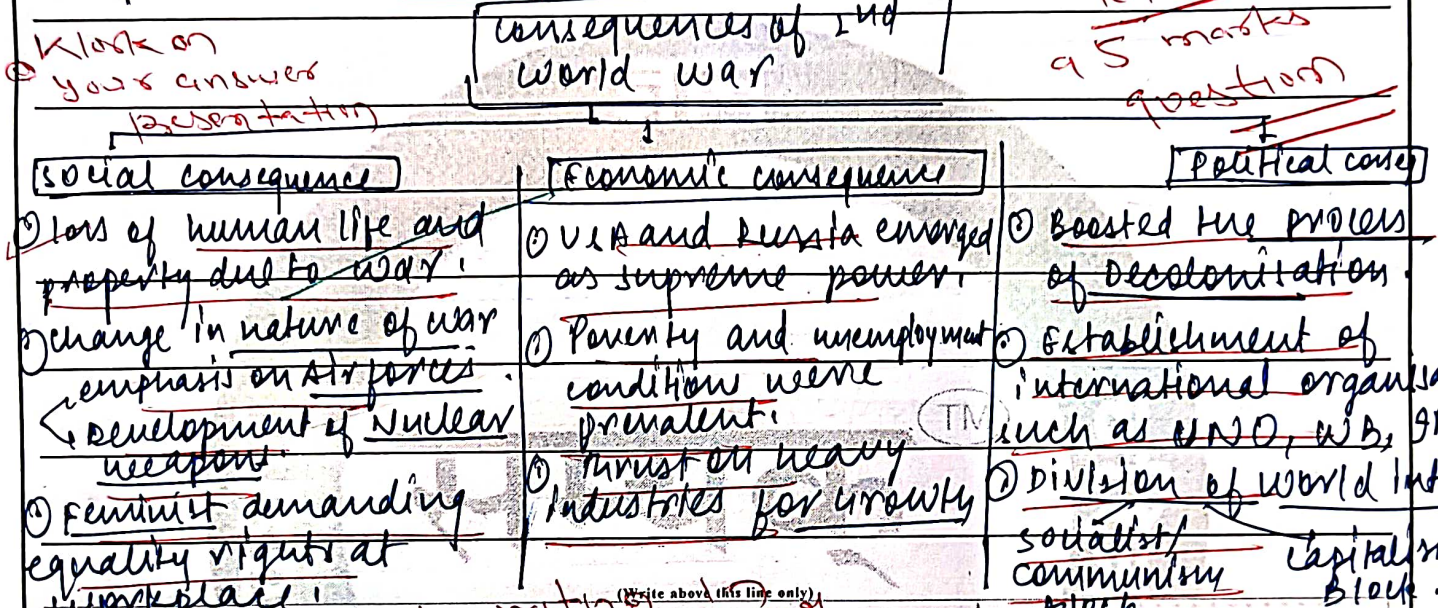 consequences of 2nd
world war
Work on
your answer
presentation
a 5 marks
question
Social consequence
loss of human life and
property due to war.
change in nature of war
emphasis on Air forces.
Development of Nuclear
weapons.
Feminist demanding
equality rights at
workplace.
Economic consequence
USA and Russia emerged
as supreme power.
Poverty and unemployment
conditions were
prevalent.
Thrust on heavy
industries for growth
Political conseq
Boosted the process
of Decolonisation.
Establishment of
international organisa
such as UNO, WB,
Division of world int
socialist/
communism
Capitalis
Block.
TM
(Write above this line only)